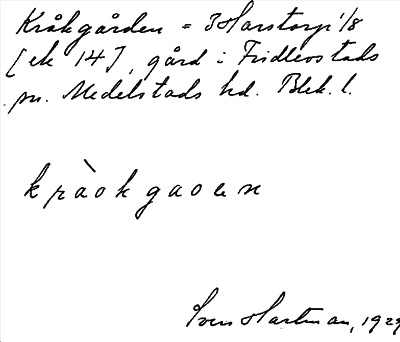 Kråkgården = 3 Harstorp 1/8
[ek 14], gård i Fridlevstads
sn. Medelstads hd. Blek. l.
kràokgaoen
Sven Hartman, 192